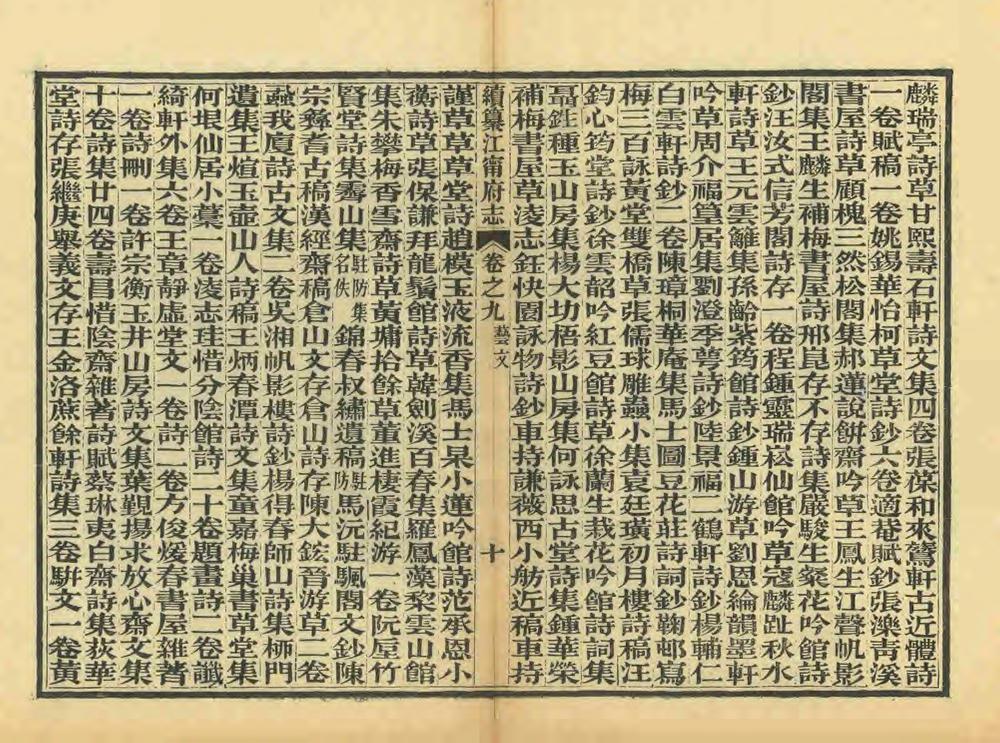 麟瑞亭詩草甘熙壽石軒詩文集四卷張葆和來鶯軒古近體詩
一卷賦稿一卷姚錫華怡柯草堂詩鈔六卷適菴賦鈔張濼青溪
書屋詩草顧槐三然松閣集郝蓮說餅齋吟草王鳳生江聲帆影
閣集王麟生補梅書屋詩邢崑存不存詩集嚴駿生粲花吟館詩
鈔汪汝式信芳閣詩存一卷程鍾靈瑞崧仙館吟草寇麟趾秋水
軒詩草王元雲籬集孫齡紫筠館詩鈔鍾山游草劉恩綸韻墨軒
吟草周介福篔居集劉澄季蕚詩鈔陸景福二鶴軒詩鈔楊輔仁
白雲軒詩鈔二卷陳璋桐華庵集馬士圖豆花莊詩詞鈔鞠邨寫
梅三百詠黃堂雙橋草張儒球雕蟲小集袁廷璜初月樓詩稿汪
鈞心筠堂詩鈔徐雲韶吟紅豆館詩草徐蘭生栽花吟館詩詞集
聶鉎種玉山房集楊大功梧影山房集何詠思古堂詩集鍾華榮
補梅書屋草淩志鈺快園詠物詩鈔車持謙薇西小舫近稿車持
續纂江甯府志 卷之九 藝文 十
謹草草草堂詩趙模玉液流香集馮士杲小蓮吟館詩范承恩小
蘅詩草張保謙拜龍鬚館詩草韓劍溪百春集羅鳳藻黎雲山館
集朱樊梅香雪齋詩草黃墉拾餘草董進棲霞紀游一卷阮垕竹
賢堂詩集霽山集駐防集名佚錦春权繡遺稿駐防馬沅駐颿閣文鈔陳
宗彝耆古稿漢經齋稿倉山文存倉山詩存陳大鋐晉游草二卷
蝨我廋詩古文集二卷吳湘帆影樓詩鈔楊得春師山詩集栁門
遺集王煊玉壺山人詩稿王炳春潭詩文集童嘉梅巢書草堂集
何垠仙居小藁一卷淩志珪惜分陰館詩二十卷題畫詩二卷讖
綺軒外集六卷王章靜虛堂文一卷詩二卷方俊煖春書屋雜著
一卷詩刪一卷許宗衡玉井山房詩文集葉覲揚求放心齋文集
十卷詩集廿四卷壽昌惜陰齋雜著詩賦蔡琳夷白齋詩集荻華
堂詩存張繼庚舉義文存王金洛蔗餘軒詩集三卷駢文一卷黃